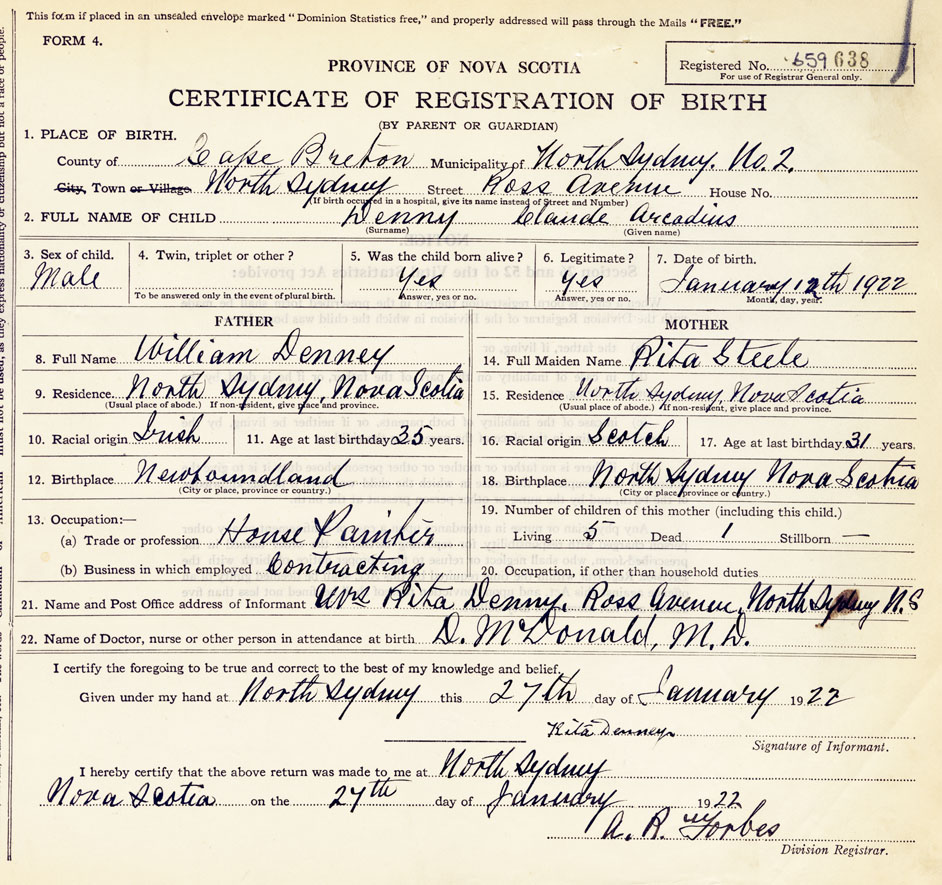 This form if placed in an unsealed envelope marked "Dominion Statistics free," and properly addressed will pass through the Mails "FREE."
FORM 4.
Registered No. 659 638
For use of Registrar General only.
PROVINCE OF NOVA SCOTIA
CERTIFICATE OF REGISTRATION OF BIRTH
(BY PARENT OR GUARDIAN)
1. PLACE OF BIRTH.
County of Cape Breton Municipality of North Sydney. No. 2.
City, Town or Village North Sydney Street Ross Avenue House No.
(If birth occurred in a hospital, give its name instead of Street and Number)
2. FULL NAME OF CHILD Denny Claude Arcadius
(Surname) (Given name)
3. Sex of child. 4. Twin, triplet or other ? 5. Was the child born alive? 6. Legitimate ? 7. Date of birth.
Male Yes Yes January 12th 1922
To be answered only in the event of plural birth. Answer, yes or no. Answer, yes or no. Month, day, year.
FATHER MOTHER
8. Full Name William Denney 14. Full Maiden Name Rita Steele
9. Residence North Sydney, Nova Scotia 15. Residence North Sydney, Nova Scotia
(Usual place of abode.) If non-resident, give place and province. (Usual place of abode.) If non-resident, give place and province.
10. Racial origin Irish 11. Age at last birthday 35 years. 16. Racial origin Scotch 17. Age at last birthday 31 years.
12. Birthplace Newfoundland 18. Birthplace North Sydney Nova Scotia
(City or place, province or country.) (City or place, province or country.)
13. Occupation:— 19. Number of children of this mother (including this child.)
(a) Trade or profession House Painter Living 5 Dead 1 Stillborn —
(b) Business in which employed Contracting 20. Occupation, if other than household duties
21. Name and Post Office address of Informant Mrs Rita Denny, Ross Avenue, North Sydney N. S
22. Name of Doctor, nurse or other person in attendance at birth D. McDonald, M. D.
I certify the foregoing to be true and correct to the best of my knowledge and belief.
Given under my hand at North Sydney this 27th day of January 1922
Rita Denney
Signature of Informant.
I hereby certify that the above return was made to me at North Sydney
Nova Scotia on the 27th day of January 1922
A. R. Forbes
Division Registrar.